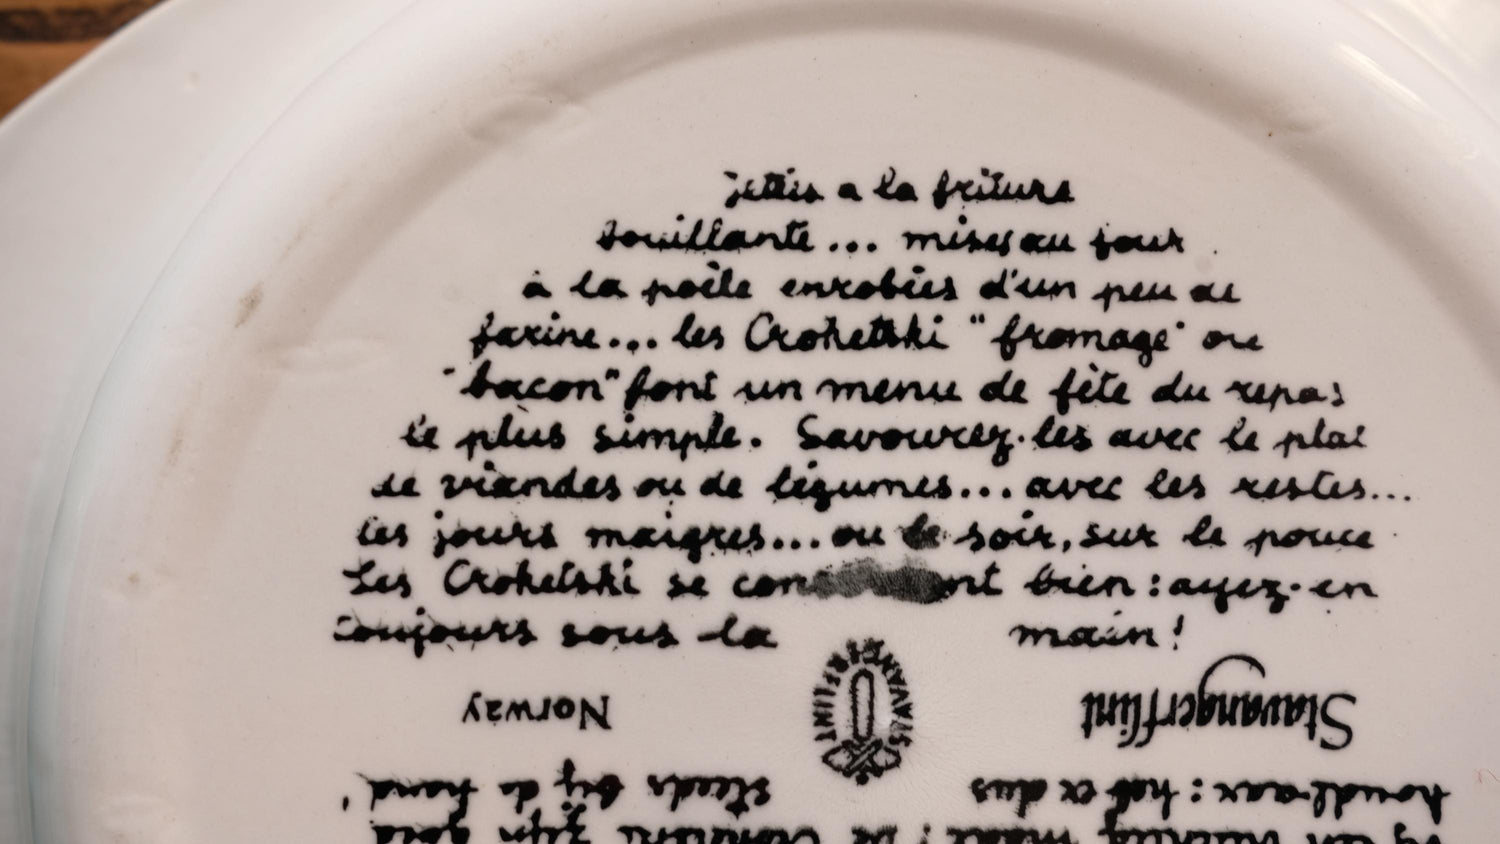 jetées a la friture
bouillante... mises au four
à la poêle enrobées d'un peu de
farine... les Croketski "fromage" ou
"bacon" font un menu de fête du repas
le plus simple. Savourez-les avec le plat
de viandes ou de légumes... avec les restes...
les jours maigres... ou le soir, sur le pouce
Les Croketski se conservent bien : ayez-en
toujours sous la main!
Norway
STAVANGERFLINT
Stavangerflint
houdbaar : heb er dus steeds bij de hand!